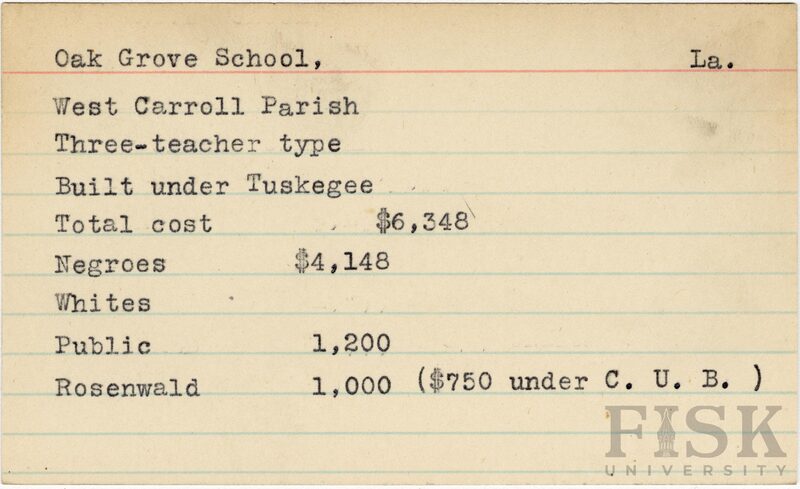 Oak Grove School, La.
West Carroll Parish
Three-teacher type
Built under Tuskegee
Total cost $6,348
Negroes $4,148
Whites
Public 1,200
Rosenwald 1,000 ($750 under C. U. B. )
FISK
UNIVERSITY